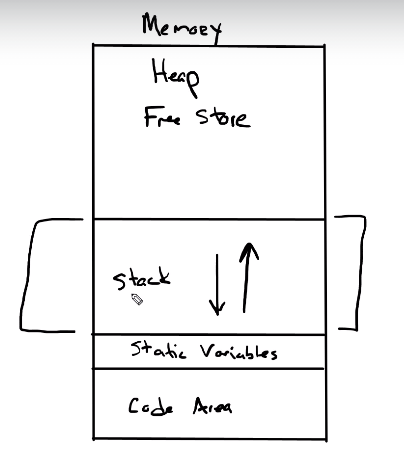 Memory
Heap
Free Store
Stack
Static Variables
Code Area